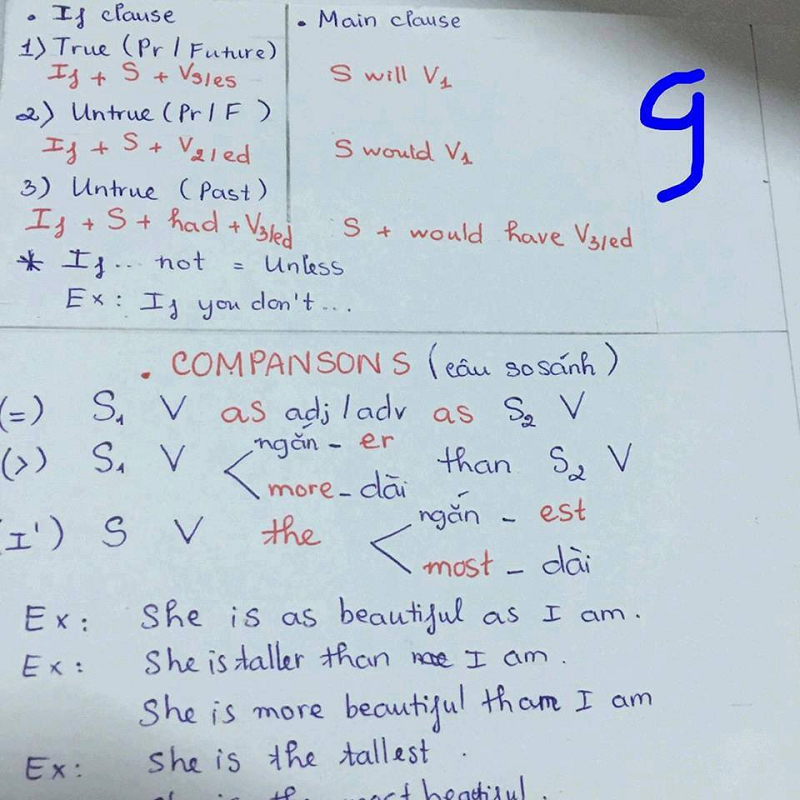 • If clause
• Main clause
1) True (Pr / Future)
If + S + V3/es
S will V1
2) Untrue (Pr / F )
If + S + V2/ed
S would V1
3) Untrue (Past)
If + S + had + V3/ed
S + would have V3/ed
* If... not = Unless
Ex: If you don't...
9
• COMPANSONS (câu so sánh)
(=) S1 V as adj/adv as S2 V
(>) S1 V
ngắn - er
more - dài
than S2 V
(I') S V the
ngắn - est
most - dài
Ex: She is as beautiful as I am.
Ex: She is taller than I am.
She is more beautiful than I am
Ex: She is the tallest.
the most beautiful.